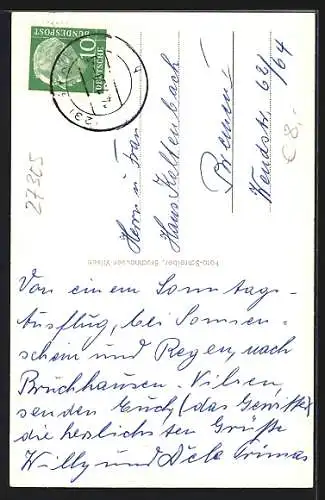 DEUTSCHE
BUNDESPOST
10
27365
€ 8,-
Herrn u. Frau
Hans Kaltenbach
Bremen
Wendstr. 62/64
Foto-Schreiber, Bruchhausen-Vilsen
Von einem Sonntags-
Ausflug, bei Sonnen-
schein und Regen, nach
Bruchhausen-Vilsen,
senden Euch, (das Gewitter)
die herzlichsten Grüße
Willy und